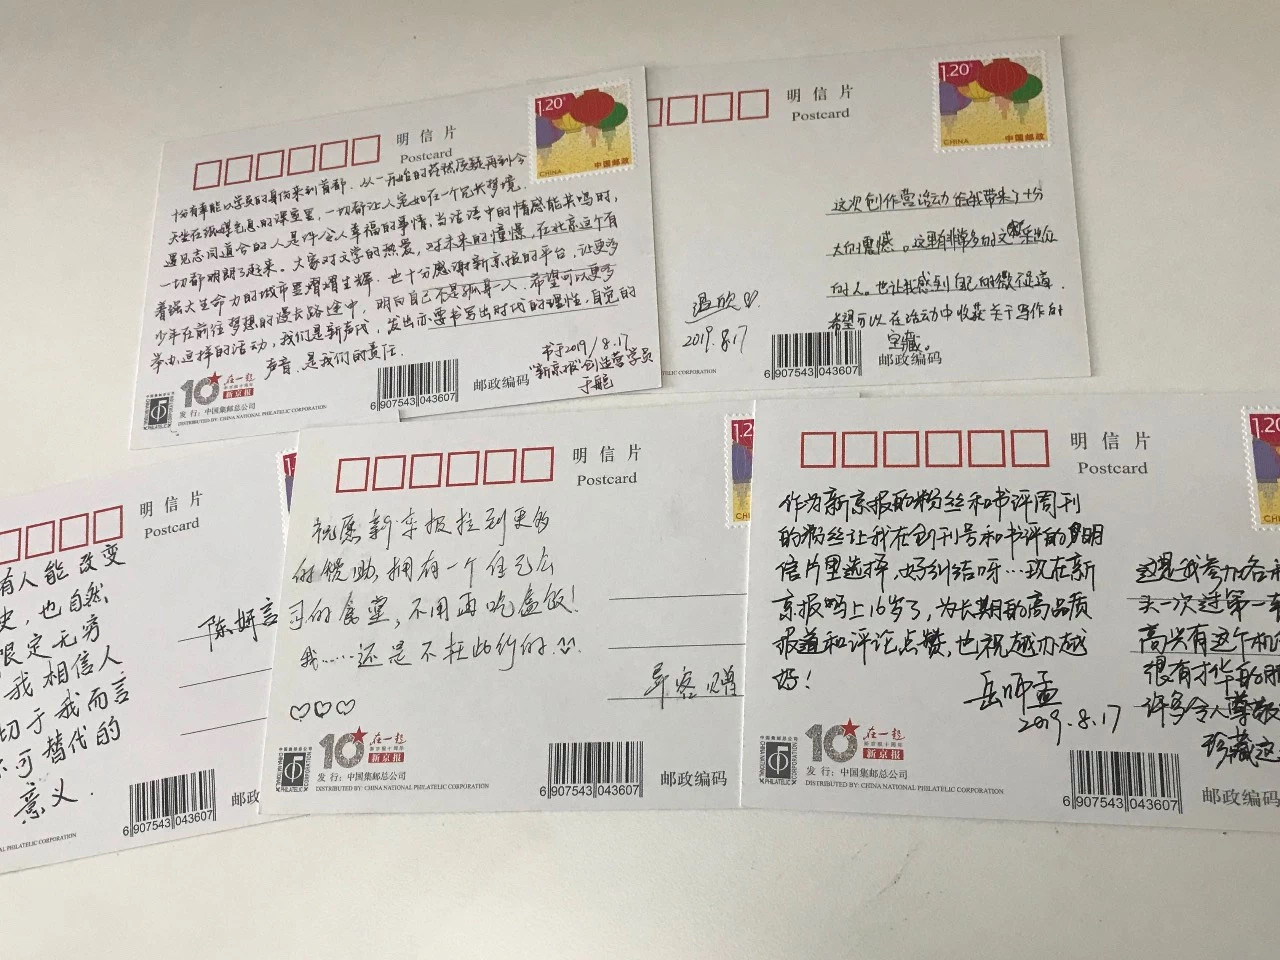 明信片
Postcard
1.20元
CHINA
中国邮政
十分有幸能以学员的身份来到首都，从一开始的茫然质疑再到今
天坐在纸媒气息的课堂里，一切都让人宛如在一个冗长梦境。
遇见志同道合的人是件令人幸福的事情，当话语中的情感能共鸣时，
一切都明朗了起来。大家对文学的热爱，对未来的憧憬，在北京这个有
着强大生命力的城市里熠熠生辉，也十分感谢新京报的平台，让更多
少年在前往梦想的漫长路途中，明白自己不是孤身一人。希望可以更多
举办这样的活动，我们是新声代，发出亦要书写出时代的理性，自觉的
声音，是我们的责任。
书于2019/8.17
"新京报"创造营学员
10
在一起
新京报
中国集邮总公司
CHINA NATIONAL PHILATELIC
发行：中国集邮总公司
DISTRIBUTED BY: CHINA NATIONAL PHILATELIC CORPORATION
6 907543 043607
邮政编码
明信片
Postcard
1.20元
CHINA
中国邮政
这次创作营活动给我带来了十分
大的震撼。这里有非常多的文采出众
的人。也让我感到自己的微不足道。
希望可以在活动中收获关于写作的
宝藏。
温欣
2019.8.17
PHILATELIC CORPORATION
6 907543 043607
邮政编码
明信片
Postcard
有人能改变
史，也自然
限定无穷
我相信人
切于我而言
不可替代的
意义.
陈妍言
NAL PHILATELIC CORPORATION
6 907543 043607
邮政
明信片
Postcard
1.2
CH
祝愿新京报拉到更多
的赞助，拥有一个自己公
司的食堂，不用再吃盒饭！
我……还是不在此约的.
赠
10
在一起
新京报
发行：中国集邮总公司
DISTRIBUTED BY: CHINA NATIONAL PHILATELIC CORPORATION
6 907543 043607
邮政编码
明信片
Postcard
1.20
CHI
作为新京报的粉丝和书评周刊
的粉丝让我在创刊号和书评的明
信片里选择，好纠结呀…现在新
京报吗上16岁了，为长期的高品质
报道和评论点赞，也祝越办越
好！
岳师孟
2019.8.17
这是我参加各
头一次过第一
高兴有这个机
很有才华的朋
许多令人尊敬
珍藏这
10
在一起
新京报
发行：中国集邮总公司
DISTRIBUTED BY: CHINA NATIONAL PHILATELIC CORPORATION
6 907543 043607
邮政编码